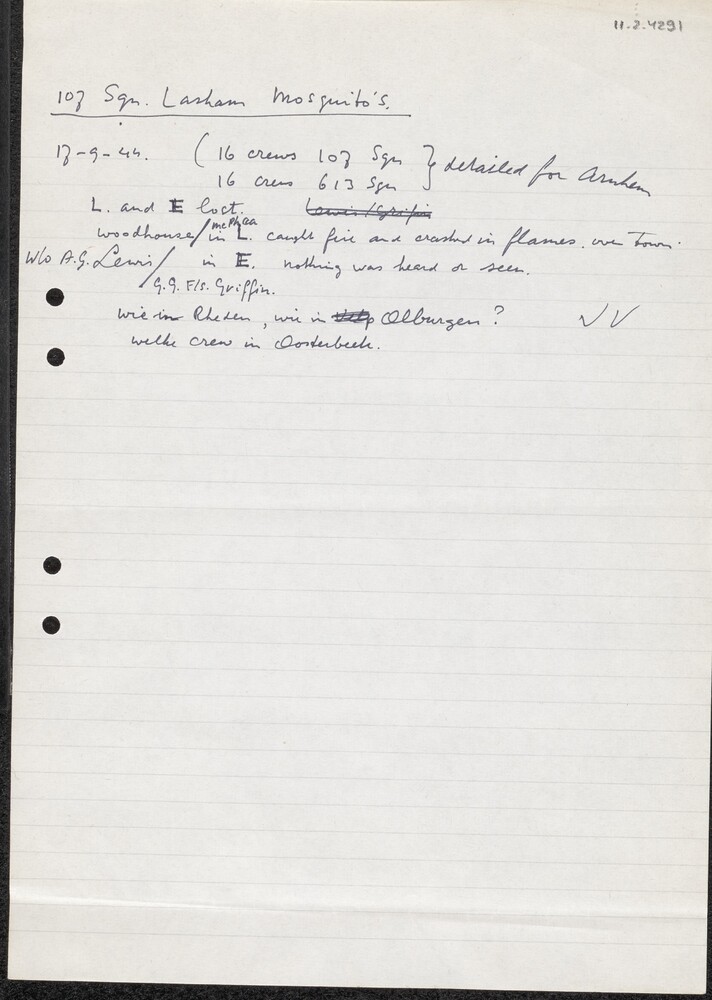 11.2.4291
107 Sqn. Lasham Mosquito's.
17-9-44. ( 16 crews 107 Sqn } detailed for Arnhem
16 crews 613 Sqn
L. and E lost. Lewis/Griffin
Woodhouse/McPhea in L. caught fire and crashed in flames. over Town.
W/o A.G. Lewis/ in E. nothing was heard or seen.
G.G. F/s. Griffin.
wie in Rheden, wie in Velp Olburgen? VV
welke crew in Oosterbeek.